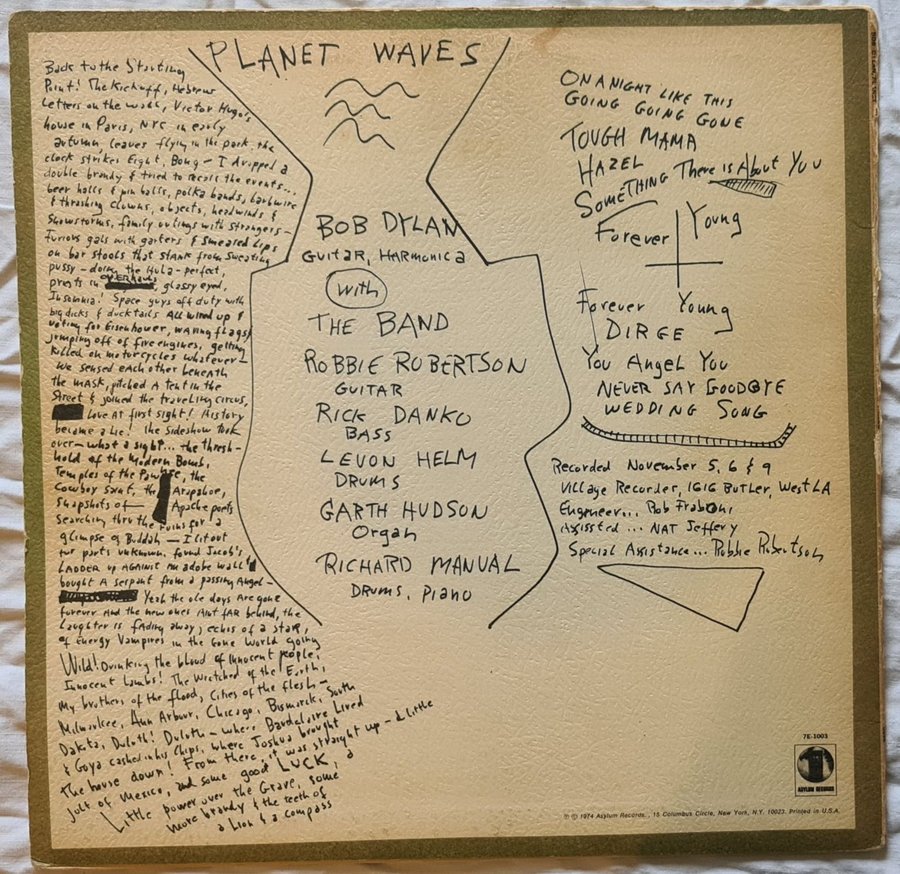 PLANET WAVES
Back to the Starting
Point! The Kickoff, Hebrew
Letters on the wall, Victor Hugo's
house in Paris, NYC in early
autumn, leaves flying in the park, the
clock strikes Eight, Bong — I dropped a
double brandy & tried to recall the events...
beer halls & pin balls, polka bands, barbwire
& thrashing clowns, objects, headwinds &
Snowstorms, family outings with strangers—
Furious gals with garters & smeared lips
on bar stools that stank from sweating
pussy — doing the Hula — perfect,
priests in overhauls, glassy eyed,
Insomnia! Space guys off duty with
big dicks & duck tails All wired up &
voting for Eisenhower, waving flags &
jumping off of fire engines, getting
killed on motorcycles whatever —
We sensed each other beneath
the mask, pitched a tent in the
Street & joined the traveling circus,
Love at first sight! History
became a Lie! the sideshow took
over — what a sight... the thresh-
hold of the Modern Bomb,
Temples of the Pawnee, the
Cowboy Saint, the Arapahoe,
Snapshots of Apache poets
searching thru the ruins for a
glimpse of Buddah — I lit out
for parts unknown, found Jacob's
LADDER up AGAINST an adobe wall &
bought A serpent from a passing Angel —
Yeah the ole days Are gone
forever And the new ones Aint fAR behind, the
Laughter is fading away, echos of a staR,
of Energy Vampires in the Gone World going
Wild! Drinking the blood of innocent people,
Innocent Lambs! The Wretched of the Earth,
My brothers of the flood, Cities of the flesh —
Milwaukee, Ann Arbour, Chicago, Bismarck, South
Dakota, Duluth! Duluth — where Baudelaire Lived
& Goya cashed in his Chips, where Joshua brought
the house down! From there, it was straight up — a little
jolt of Mexico, and some good LUCK, a
Little power over the Grave, some
more brandy & the teeth of
a Lion & a compass
BOB DYLAN
GUITAR, HARMONICA
With
THE BAND
ROBBIE ROBERTSON
GUITAR
RICK DANKO
BASS
LEVON HELM
DRUMS
GARTH HUDSON
Organ
RICHARD MANUAL
DRUMS, Piano
ON A NIGHT LIKE THIS
GOING GOING GONE
TOUGH MAMA
HAZEL
SOMETHING There is About You
Forever Young
Forever Young
DIRGE
You Angel You
NEVER SAY GOODBYE
WEDDING SONG
Recorded November 5, 6 & 9
Village Recorder, 1616 BUTLER, West LA
Engineer... Rob Fraboni
Assissted... NAT Jeffery
Special Assistance... Robbie Robertson
7E-1003
ASYLUM RECORDS
℗ © 1974 Asylum Records., 15 Columbus Circle, New York, N.Y. 10023. Printed in U.S.A.